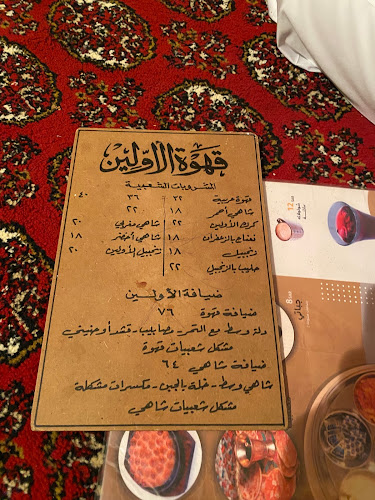 قهوة الأولين
المشروبات الشعبية
قهوة عربية ٣٢ ٣٦ ٤٠
شاهي أحمر ١٨ ٢٢
كرك الأولين ٢٢ شاهي مغربي ٢٠
نعناع بالزعفران ١٨ شاهي أخضر ١٨
زنجبيل ١٨ زنجبيل الأولين ٢٠
حليب بالزنجبيل ٢٢
ضيافة الأولين
ضيافة قهوة ٧٦
دلة وسط مع التمر - مصابيب - قشد أو حنيني
مشكل شعبيات قهوة
ضيافة شاهي ٦٤
شاهي وسط - خلة بالجبن - مكسرات مشكلة
مشكل شعبيات شاهي
12
8